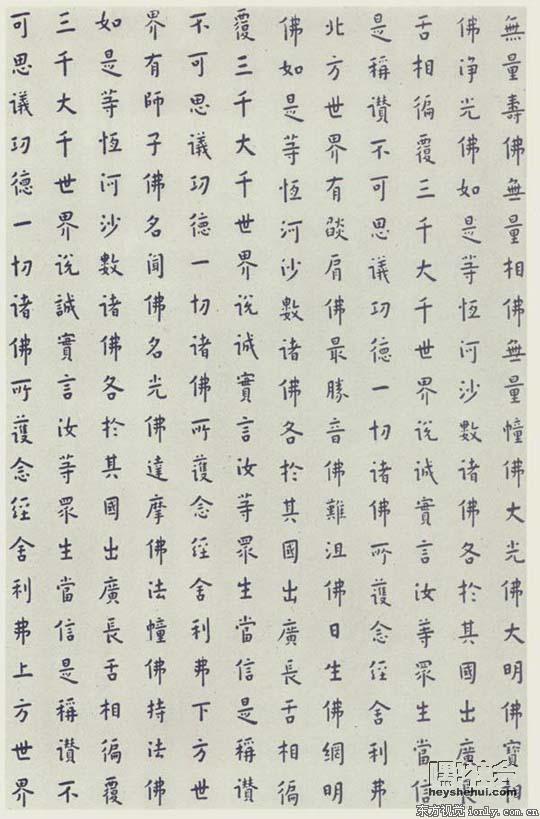 無量壽佛無量相佛無量幢佛大光佛大明佛寶相
佛淨光佛如是等恆河沙數諸佛各於其國出廣長
舌相徧覆三千大千世界說誠實言汝等眾生當信
是稱讚不可思議功德一切諸佛所護念經舍利弗
北方世界有燄肩佛最勝音佛難沮佛日生佛網明
佛如是等恆河沙數諸佛各於其國出廣長舌相徧
覆三千大千世界說誠實言汝等眾生當信是稱讚
不可思議功德一切諸佛所護念經舍利弗下方世
界有師子佛名聞佛名光佛達摩佛法幢佛持法佛
如是等恆河沙數諸佛各於其國出廣長舌相徧覆
三千大千世界說誠實言汝等眾生當信是稱讚不
可思議功德一切諸佛所護念經舍利弗上方世界
heyshehui.com
东方视觉 ionly.com.cn